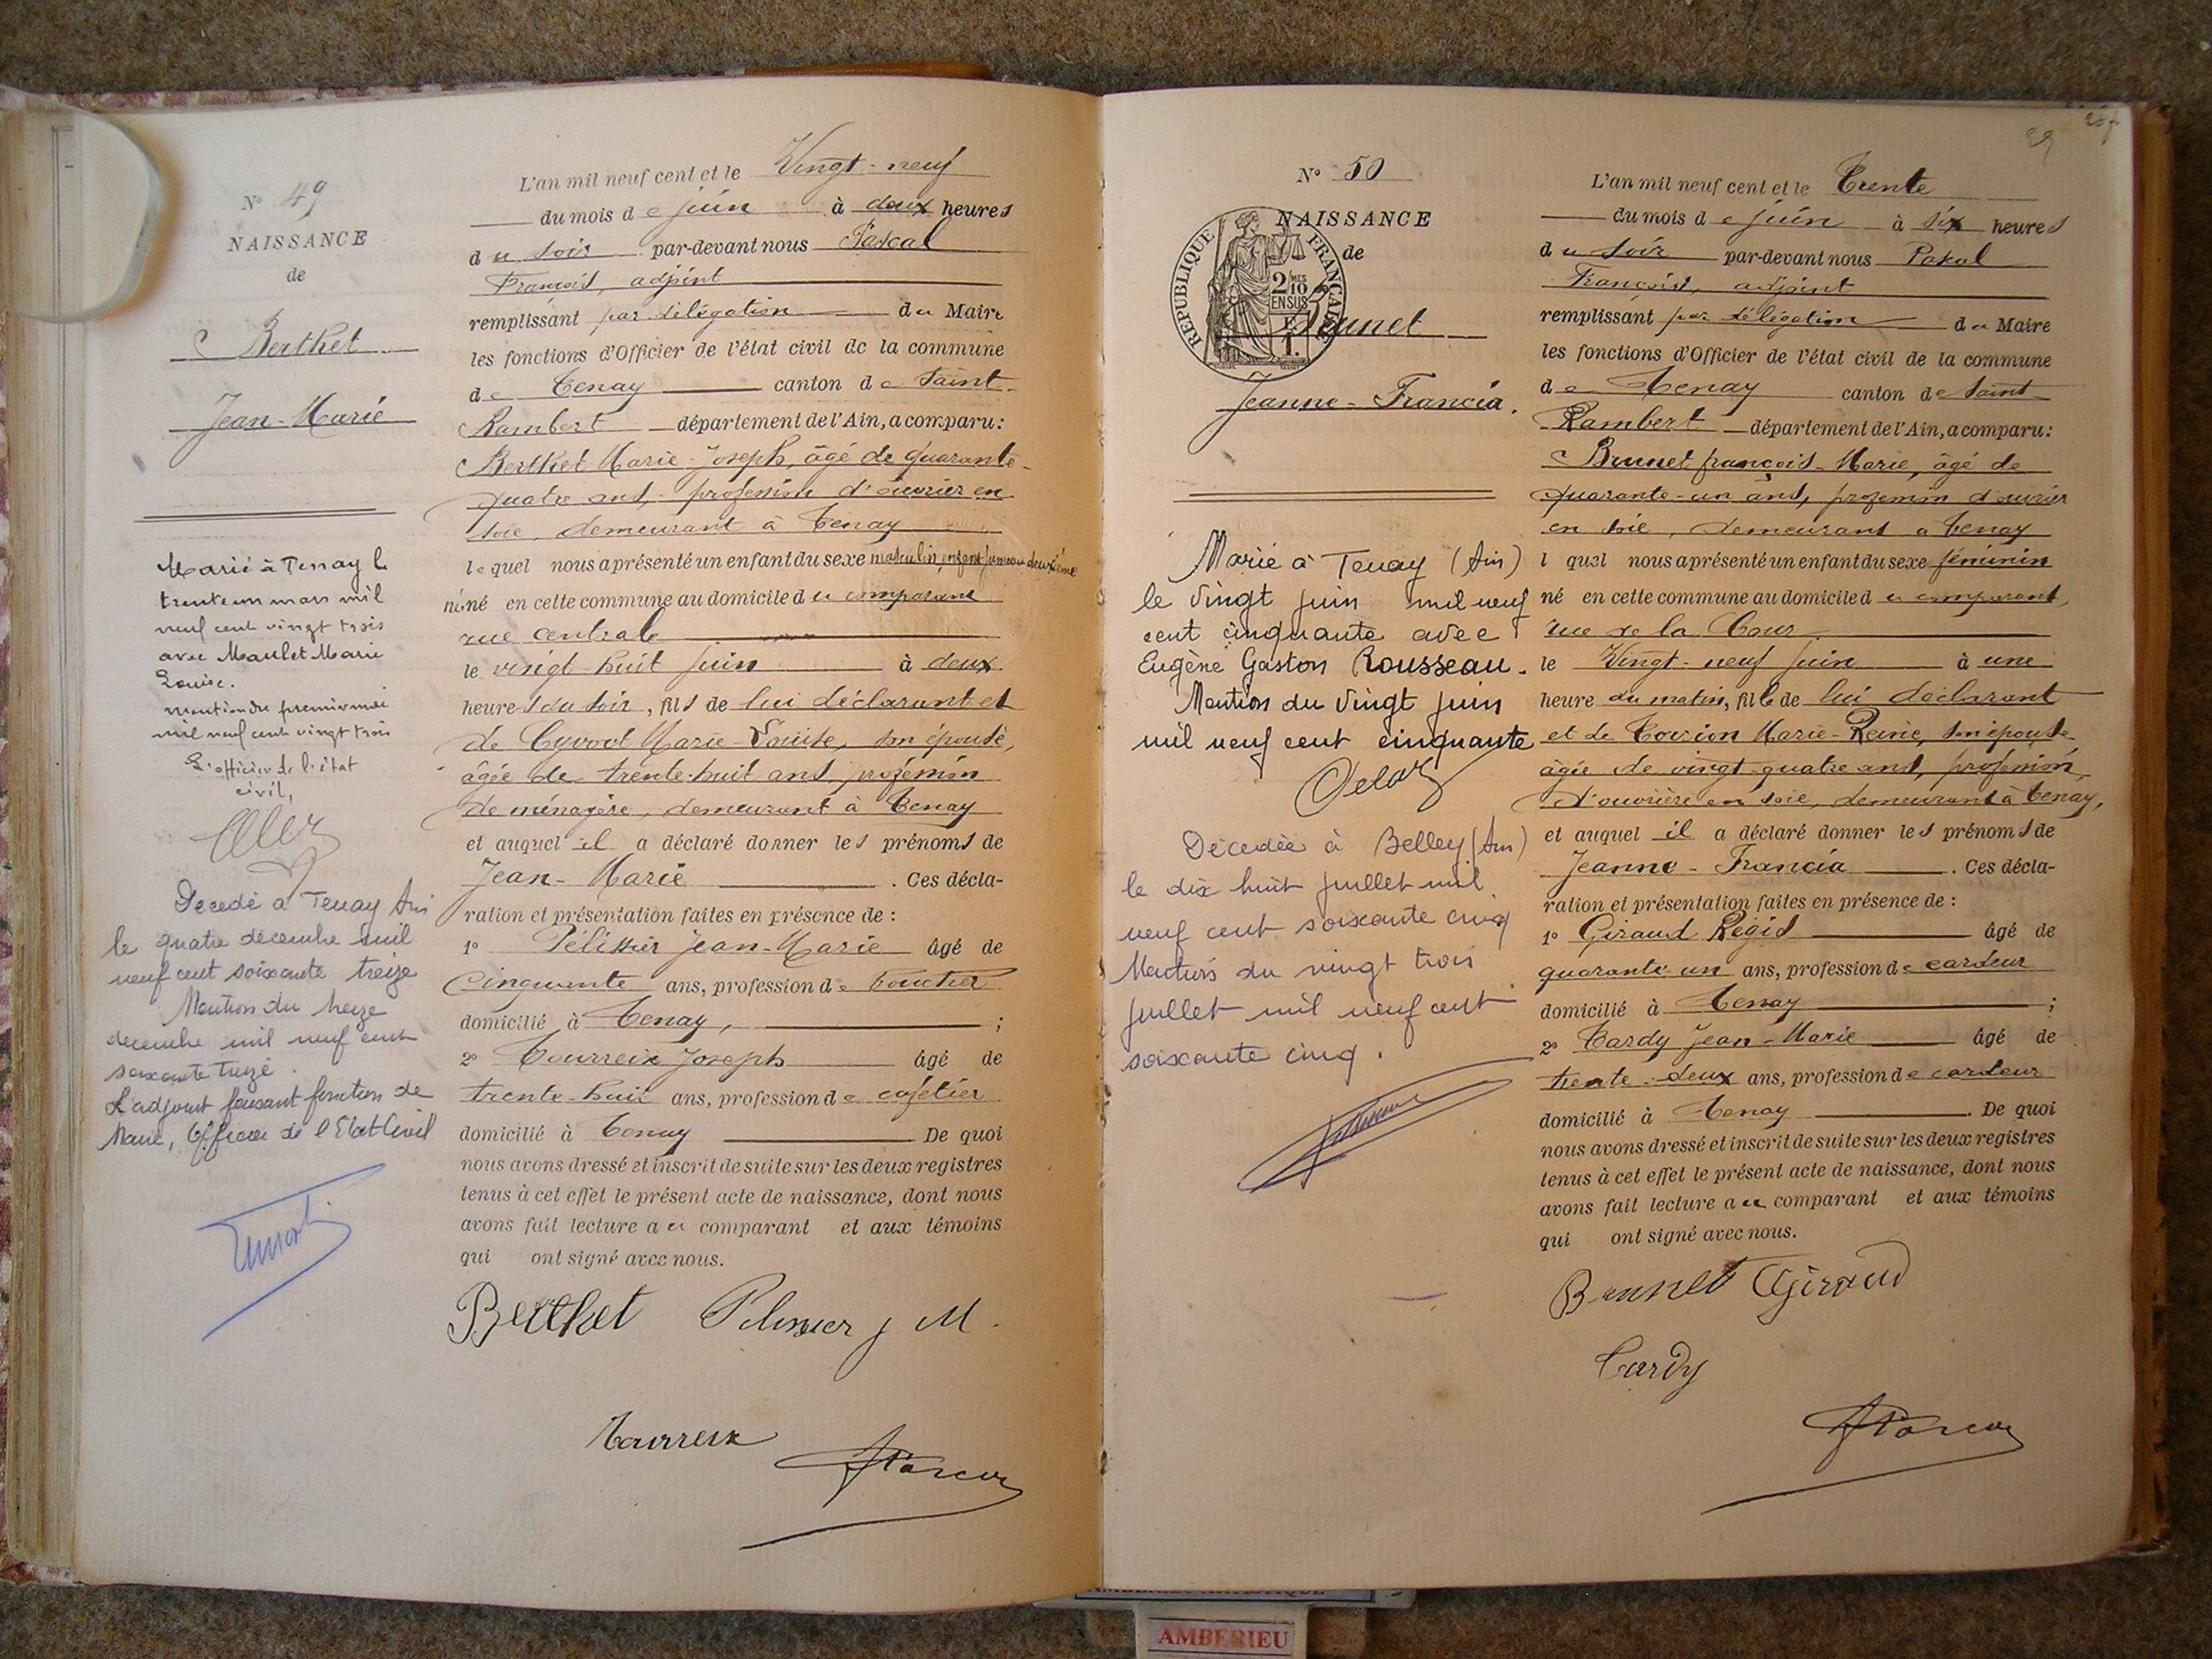 N° 49
NAISSANCE
de
Berthet
Jean-Marie
Marié à Tenay le
trente un mars mil
neuf cent vingt trois
avec Maulet Marie
Louise.
mention du premier mai
mil neuf cent vingt trois
L'officier de l'état
civil,
Décédé à Tenay Ain
le quatre décembre mil
neuf cent soixante treize
Mention du treize
décembre mil neuf cent
soixante treize.
L'adjoint faisant fonction de
Maire, Officier de l'Etat Civil
L'an mil neuf cent et le Vingt-neuf
du mois de juin à deux heures
du soir par-devant nous Pascal
François, adjoint
remplissant par délégation du Maire
les fonctions d'Officier de l'état civil de la commune
de Tenay canton de Saint-
Rambert département de l'Ain, a comparu:
Berthet Marie-Joseph, âgé de quarante-
quatre ans, profession d'ouvrier en
soie, demeurant à Tenay
lequel nous a présenté un enfant du sexe masculin, enfant jumeau deuxième
né né en cette commune au domicile du comparant
rue centrale
le vingt-huit juin à deux
heures du soir, fils de lui déclarant et
de Marie-Louise, son épouse,
âgée de trente-huit ans, profession
de ménagère, demeurant à Tenay
et auquel il a déclaré donner les prénoms de
Jean-Marie . Ces décla-
ration et présentation faites en présence de :
1° Pélissier Jean-Marie âgé de
Cinquante ans, profession de boucher
domicilié à Tenay, ;
2° Tourreix Joseph âgé de
trente-huit ans, profession de cafetier
domicilié à Tenay De quoi
nous avons dressé et inscrit de suite sur les deux registres
tenus à cet effet le présent acte de naissance, dont nous
avons fait lecture au comparant et aux témoins
qui ont signé avec nous.
Berthet Pelissier J M.
Tourreix
N° 50
NAISSANCE
de
RÉPUBLIQUE FRANÇAISE
2/10 MES
EN SUS
Brunet
Jeanne-Francia.
Marié à Tenay (Ain)
le Vingt juin mil neuf
cent cinquante avec
Eugène Gaston Rousseau.
Mention du Vingt juin
mil neuf cent cinquante
Décédée à Belley (Ain)
le dix huit juillet mil
neuf cent soixante cinq
Mention du vingt trois
juillet mil neuf cent
soixante cinq.
29
L'an mil neuf cent et le Trente
du mois de juin à six heures
du soir par-devant nous Pascal
François, adjoint
remplissant par délégation du Maire
les fonctions d'Officier de l'état civil de la commune
de Tenay canton de Saint-
Rambert département de l'Ain, a comparu:
Brunet françois-Marie, âgé de
quarante-un ans, profession d'ouvrier
en soie, demeurant à Tenay
l quel nous a présenté un enfant du sexe féminin
né en cette commune au domicile du comparant,
rue de la Cour
le Vingt-neuf juin à une
heure du matin, fille de lui déclarant
et de Marie-Reine, son épouse
âgée de vingt-quatre ans, profession
d'ouvrière en soie, demeurant à Tenay,
et auquel il a déclaré donner les prénoms de
Jeanne-Francia . Ces décla-
ration et présentation faites en présence de :
1° Giraud Régis âgé de
quarante-un ans, profession de cardeur
domicilié à Tenay ;
2° Tardy Jean-Marie âgé de
trente-deux ans, profession de cardeur
domicilié à Tenay . De quoi
nous avons dressé et inscrit de suite sur les deux registres
tenus à cet effet le présent acte de naissance, dont nous
avons fait lecture au comparant et aux témoins
qui ont signé avec nous.
Brunet Giraud
Tardy
AMBERIEU